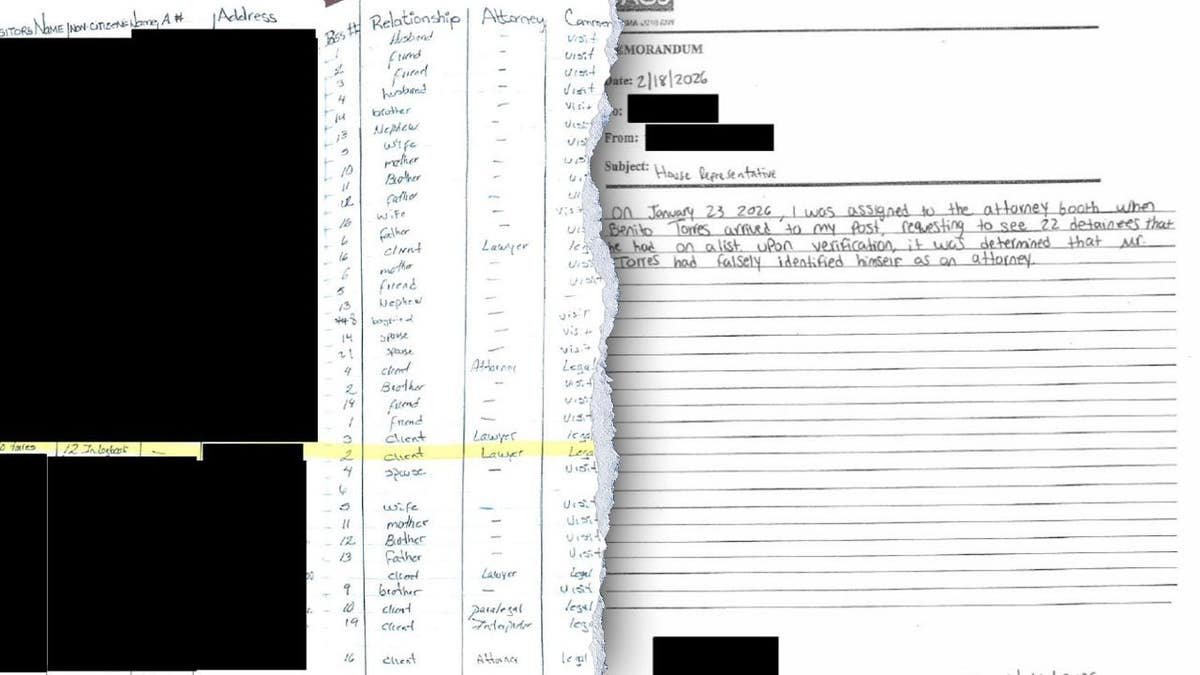 Name / NON-CITIZENS Name, A# Address Bdg # Relationship Attorney
Husband – Visit
1 friend – Visit
2 friend – Visit
3 husband – Visit
4 brother – Visit
14 Nephew –
13 Wife –
5 mother –
10 Brother –
11 father –
12 Wife –
father –
6 client Lawyer
16 mother –
6 friend –
5 Nephew –
13 boyfriend – Visit
14 spouse – Visit
21 spouse – Visit
4 client Attorney Legal
2 Brother – Visit
19 friend – Visit
1 Friend – Visit
3 client Lawyer legal
12 In logbook – 2 Client Lawyer Legal
4 spouse – Visit
6
5 wife – Visit
11 mother – Visit
12 Brother – Visit
13 Father – Visit
client Lawyer legal
9 brother – Visit
10 client paralegal legal
19 client
16 client Attorney legal
MEMORANDUM
Date: 2/18/2026
To:
From:
Subject: House Representative
On January 23 2026, I was assigned to the attorney booth when
Benito Torres arrived to my post, requesting to see 22 detainees that
he had on a list. Upon verification, it was determined that Mr.
Torres had falsely identified himself as an attorney.